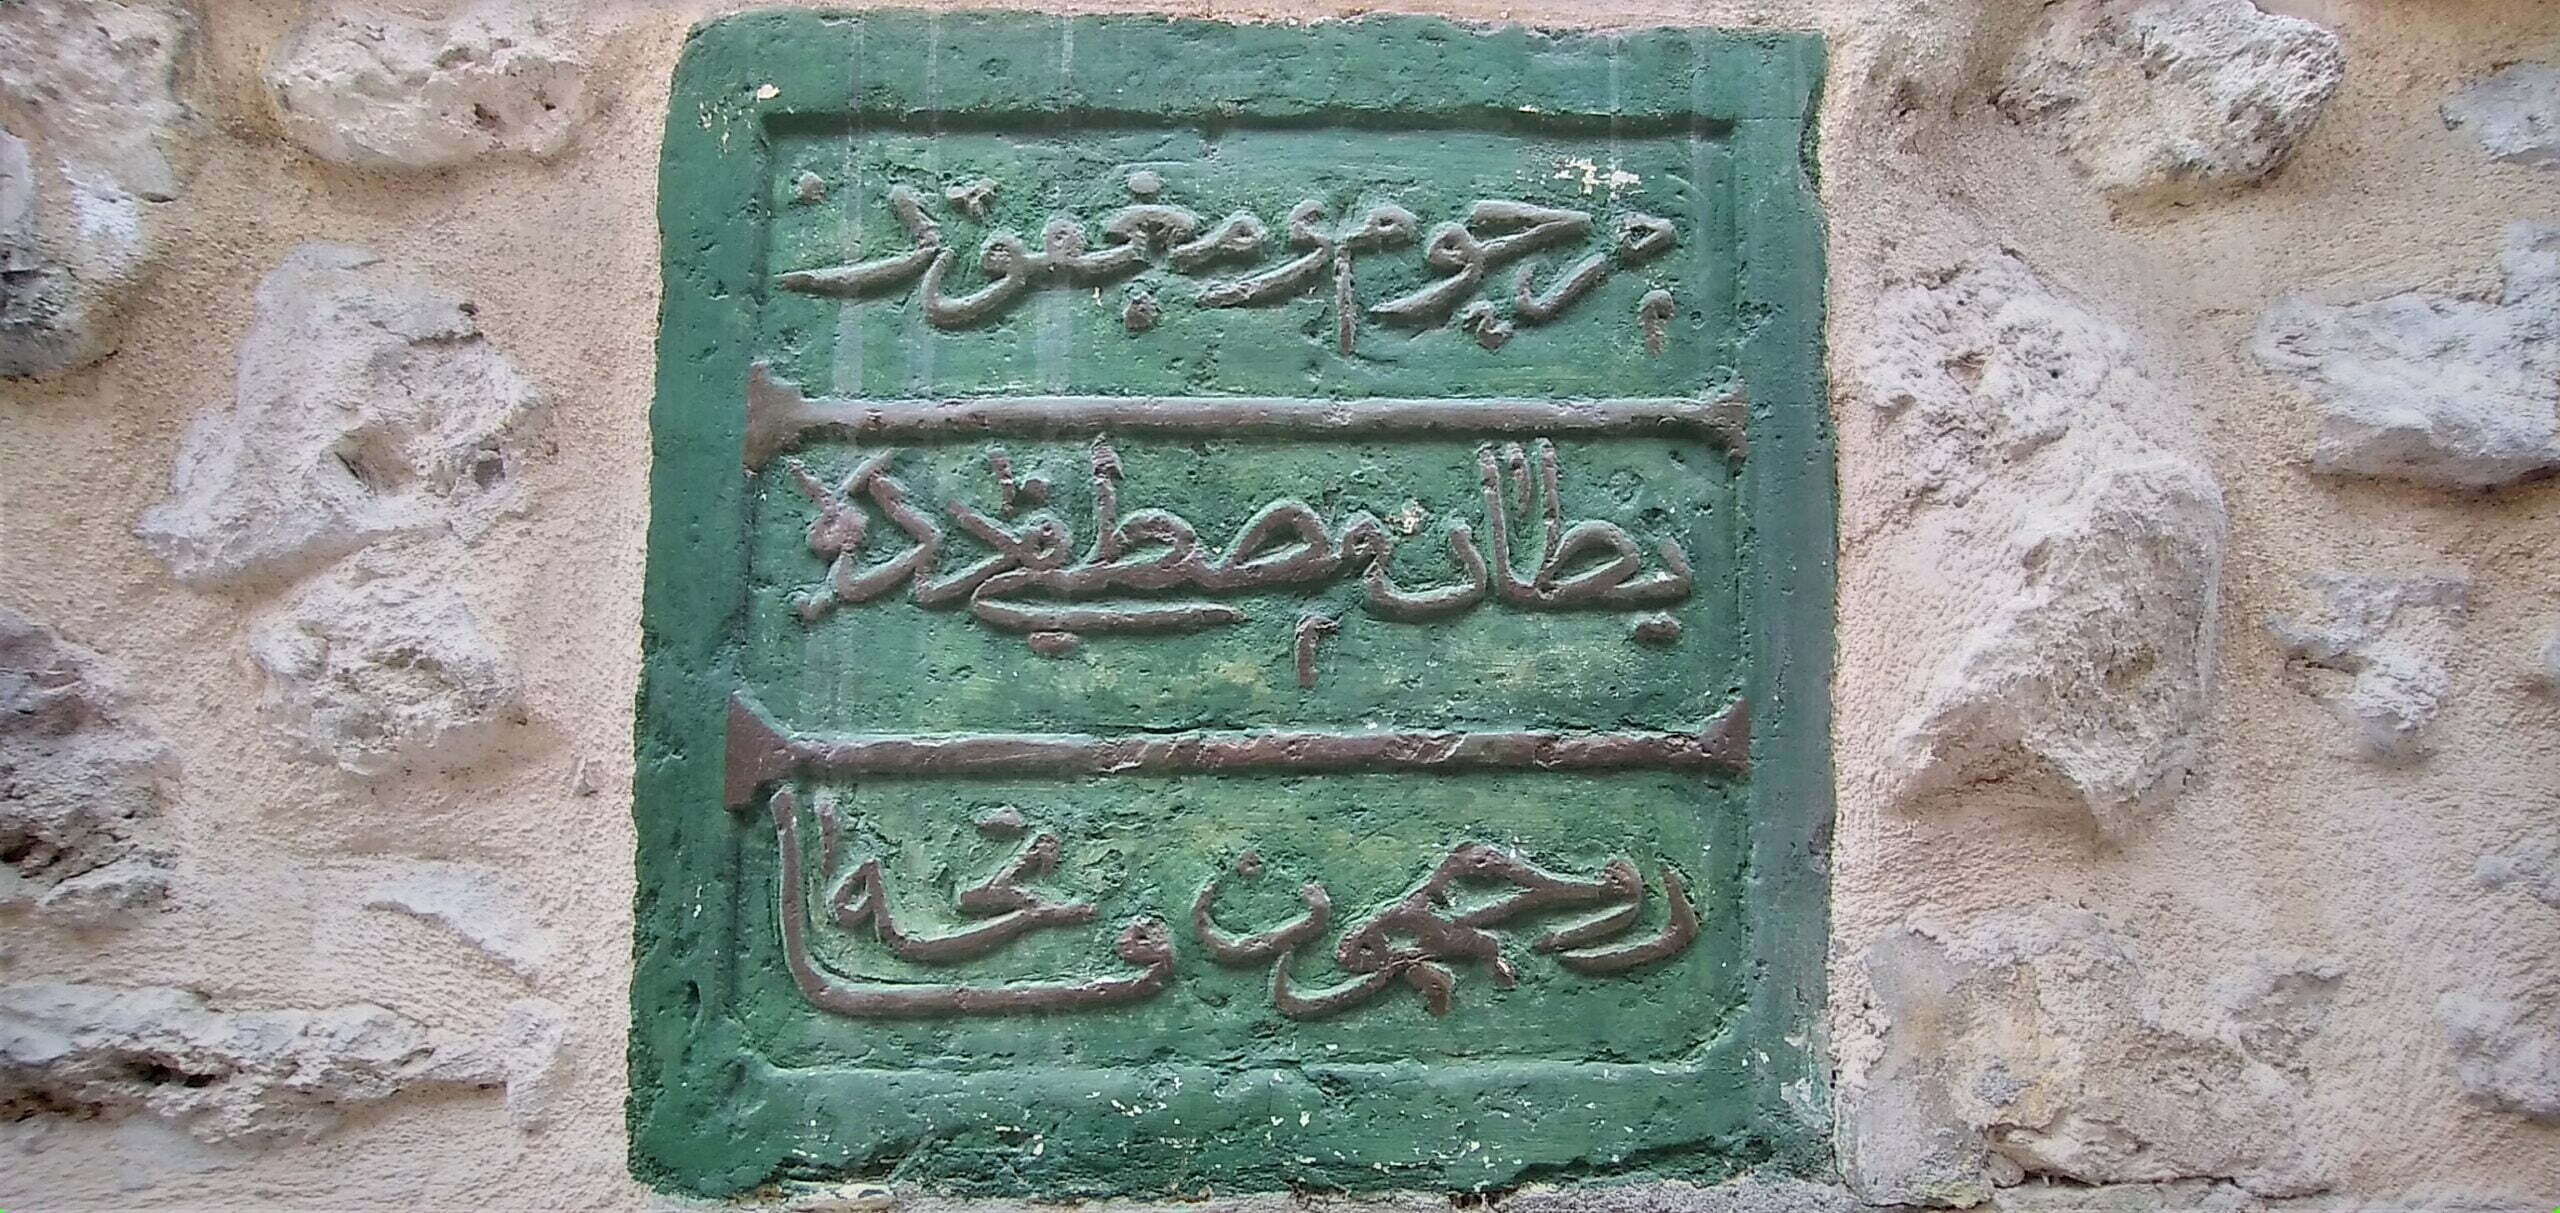 مرحوم و مغفور
بطال مصطفى دده
روحيچون فاتحه